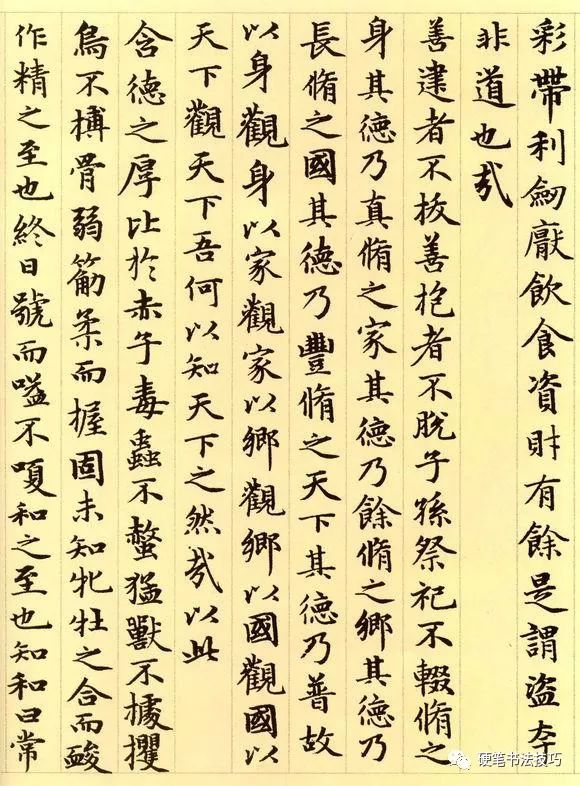 彩帶利劒厭飲食資財有餘是謂盜夸
非道也哉
善建者不拔善抱者不脫子孫祭祀不輟脩之
身其德乃真脩之家其德乃餘脩之鄉其德乃
長脩之國其德乃豐脩之天下其德乃普故
以身觀身以家觀家以鄉觀鄉以國觀國以
天下觀天下吾何以知天下之然哉以此
含德之厚比於赤子毒蟲不螫猛獸不據攫
鳥不搏骨弱筋柔而握固未知牝牡之合而酸
作精之至也終日號而嗌不嗄和之至也知和曰常
硬笔书法技巧